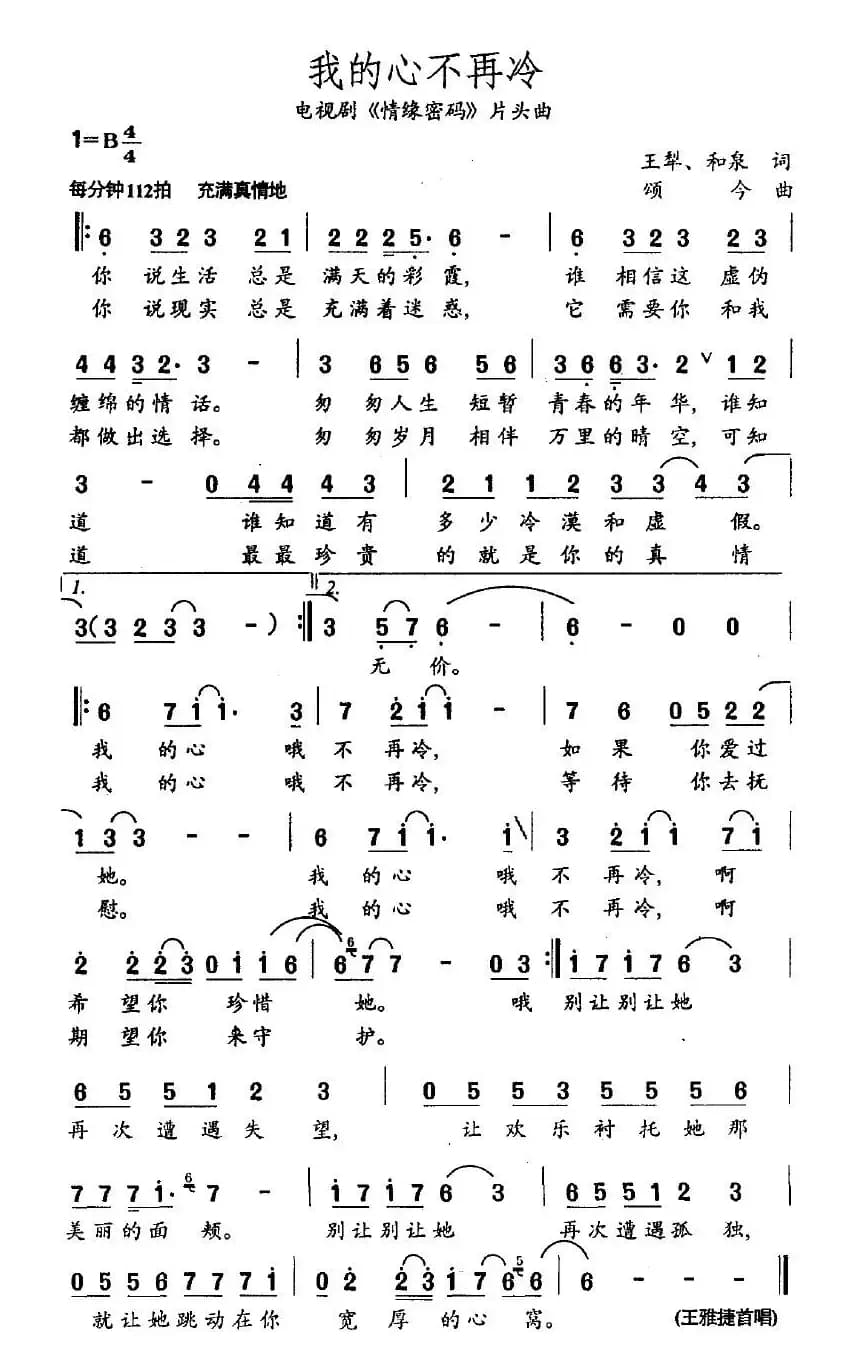 我的心不再冷
电视剧《情缘密码》片头曲
1=B 4/4
王犁、和泉 词
每分钟112拍 充满真情地
颂 今 曲
6 3 2 3 2 1 | 2 2 2 5· 6 - | 6 3 2 3 2 3
你 说生活 总是 满天的彩 霞, 谁 相信这 虚伪
你 说现实 总是 充满着迷 惑, 它 需要你 和我
4 4 3 2· 3 - | 3 6 5 6 5 6 | 3 6 6 3· 2 ∨ 1 2
缠绵的情 话。 匆 匆人生 短暂 青春的年 华, 谁知
都做出选 择。 匆 匆岁月 相伴 万里的晴 空, 可知
3 - 0 4 4 4 3 | 2 1 1 2 3 3 4 3
道 谁知道有 多少冷漠和虚 假。
道 最最珍贵 的就是你的真 情
1. 2.
3(3 2 3 3 - ) :‖ 3 5 7 6 - | 6 - 0 0
无 价。
‖: 6 7 i i· 3 | 7 2 i i - | 7 6 0 5 2 2
我 的心 哦 不 再冷, 如 果 你爱过
我 的心 哦 不 再冷, 等 待 你去抚
1 3 3 - - | 6 7 i i· i | 3 2 i i 7 i
她。 我 的心 哦 不 再冷, 啊
慰。 我 的心 哦 不 再冷, 啊
2 2 2 3 0 i i 6 | 6 6 7 7 - 0 3 :‖ i 7 i 7 6 3
希 望你 珍惜 她。 哦 别让别让她
期 望你 来守 护。
6 5 5 1 2 3 | 0 5 5 3 5 5 5 6
再次遭遇失 望, 让欢乐衬托她那
7 7 7 i· 6 7 - | i 7 i 7 6 3 | 6 5 5 1 2 3
美丽的面 颊。 别让别让她 再次遭遇孤 独,
0 5 5 6 7 7 7 i | 0 2 2 3 i 7 6 5 6 | 6 - - - ‖
就让她跳动在你 宽 厚 的心 窝。 (王雅捷首唱)